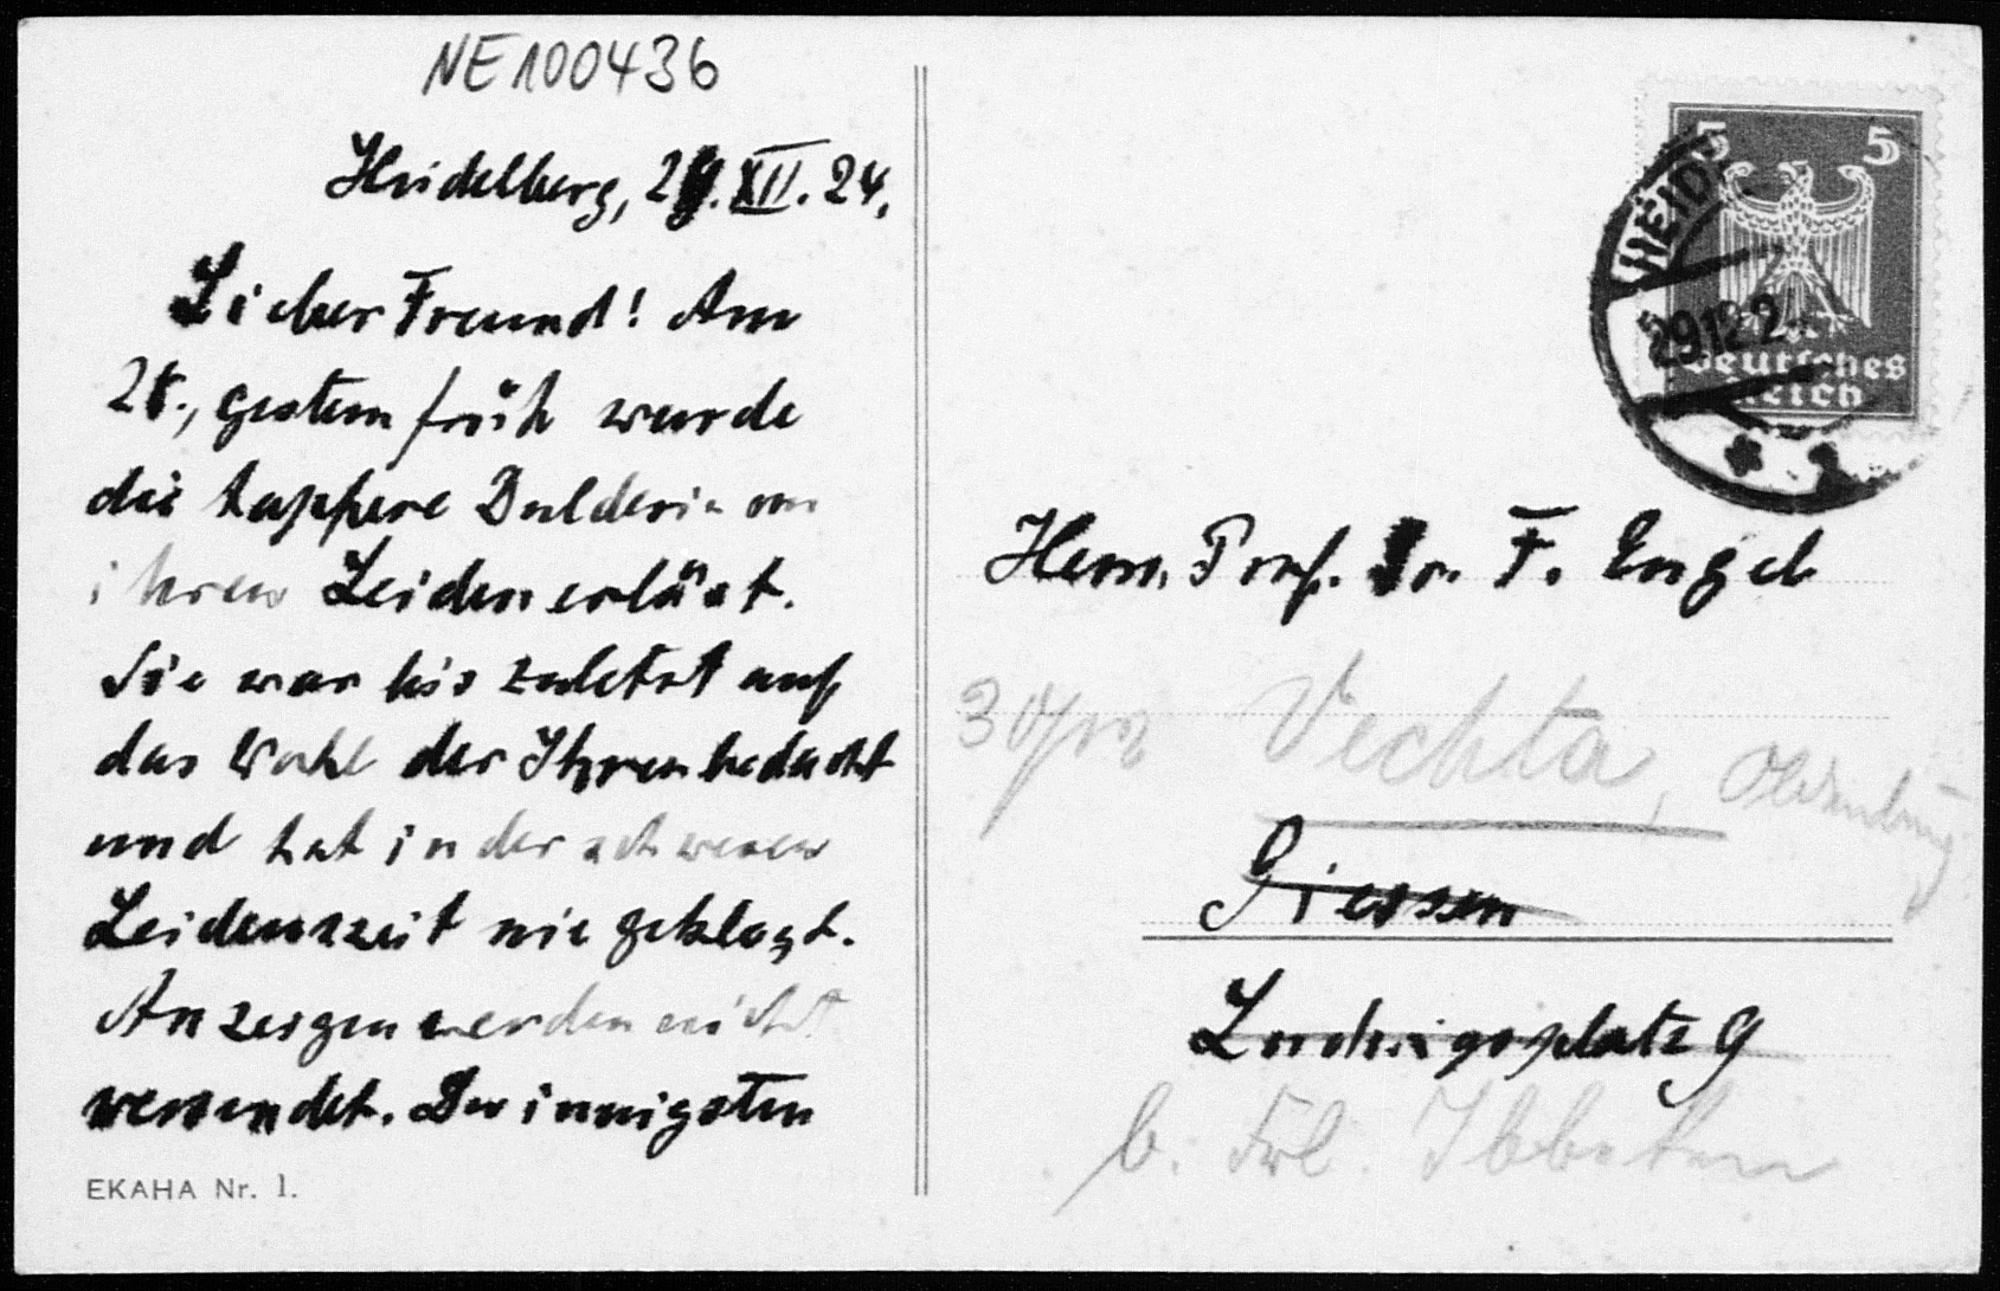 NE100436
Heidelberg, 29. XII. 24.
Lieber Freund! Am
28., gestern früh wurde
die tappere Dulderin von
ihren Leiden erläst.
Sie war bis zuletzt auf
das Wohl der Ihren bedacht
und hat in der schweren
Leidenszeit nie geklagt.
Anzeigen werden nicht
versendet. Der innigsten
EKAHA Nr. 1.
5 5
HEID
29.12.2
Deutsches
Reich
Herrn Prof. Dr. F. Engel
Vechta, Oldenburg
Giessen
Ludwigsplatz 9
b. Frl.